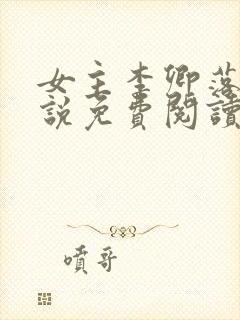 女主李卿落
說免費閱讀
噴哥